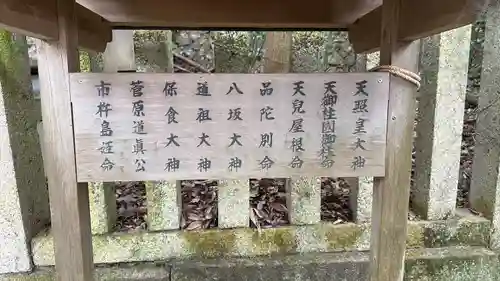 天照皇大神
天御柱国御柱命
天兒屋根命
品陀別命
八坂大神
道祖大神
保食大神
菅原道真公
市杵島姫命